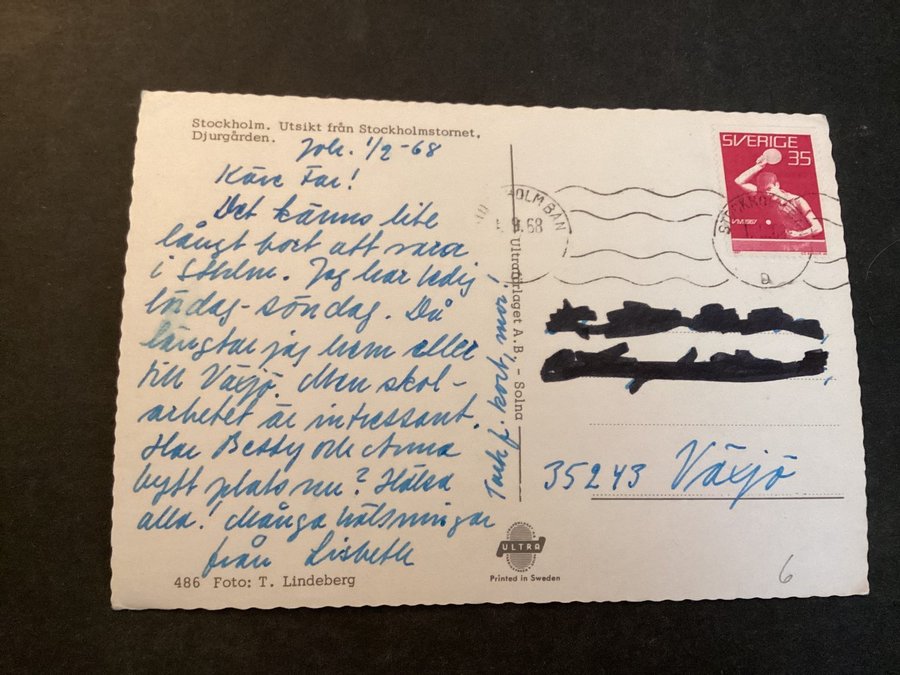 Stockholm. Utsikt från Stockholmstornet,
Djurgården.
1/2-68
Käre Far!
Det känns lite
långt bort att vara
i Sthlm. Jag har ledig
lördag-söndag. Då
längtar jag hem eller
till Växjö. Men skol-
arbetet är intressant.
Har Betty och Anna
bytt plats nu? Hälsa
alla! Många hälsningar
från Lisbeth
Tack f. kort, mor!
486 Foto: T. Lindeberg
Ultraförlaget A.B - Solna
OLM BAN
.68
STOCKHOLM
SVERIGE
35
VM 1967
35243 Växjö
ULTRA
Printed in Sweden
6